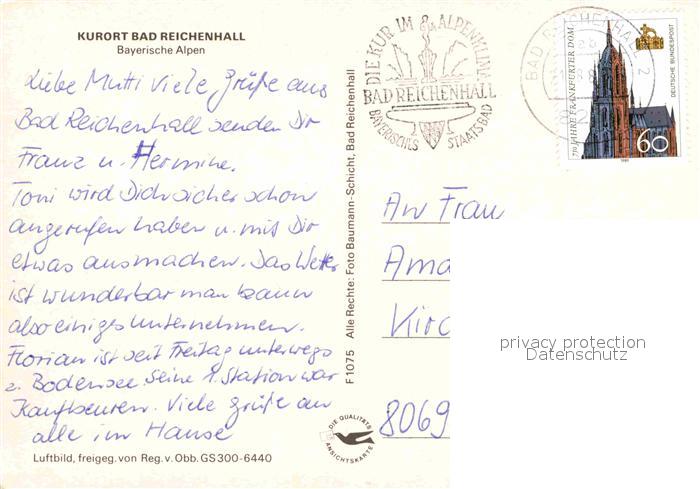 KURORT BAD REICHENHALL
Bayerische Alpen
Liebe Mutti viele Grüße aus
Bad Reichenhall senden Dir
Franz u. Hermine.
Toni wird Dich sicher schon
angerufen haben u. mit Dir
etwas ausmachen. Das Wetter
ist wunderbar man kann
also einiges unternehmen.
Florian ist seit Freitag unterwegs
z. Bodensee. Seine 1. Station war
Kaufbeuren. Viele Grüße an
alle im Hause
Luftbild, freigeg. von Reg. v. Obb. GS 300-6440
F 1075 Alle Rechte: Foto Baumann-Schicht, Bad Reichenhall
DIE QUALITÄTS
ANSICHTSKARTE
DIE KUR IM ALPENKLIMA
BAD REICHENHALL
BAYERISCHES STAATSBAD
BAD REICHENHALL 2
750 JAHRE FRANKFURTER DOM
DEUTSCHE BUNDESPOST
60
1989
An Frau
Ama
Kirc
8069
privacy protection
Datenschutz